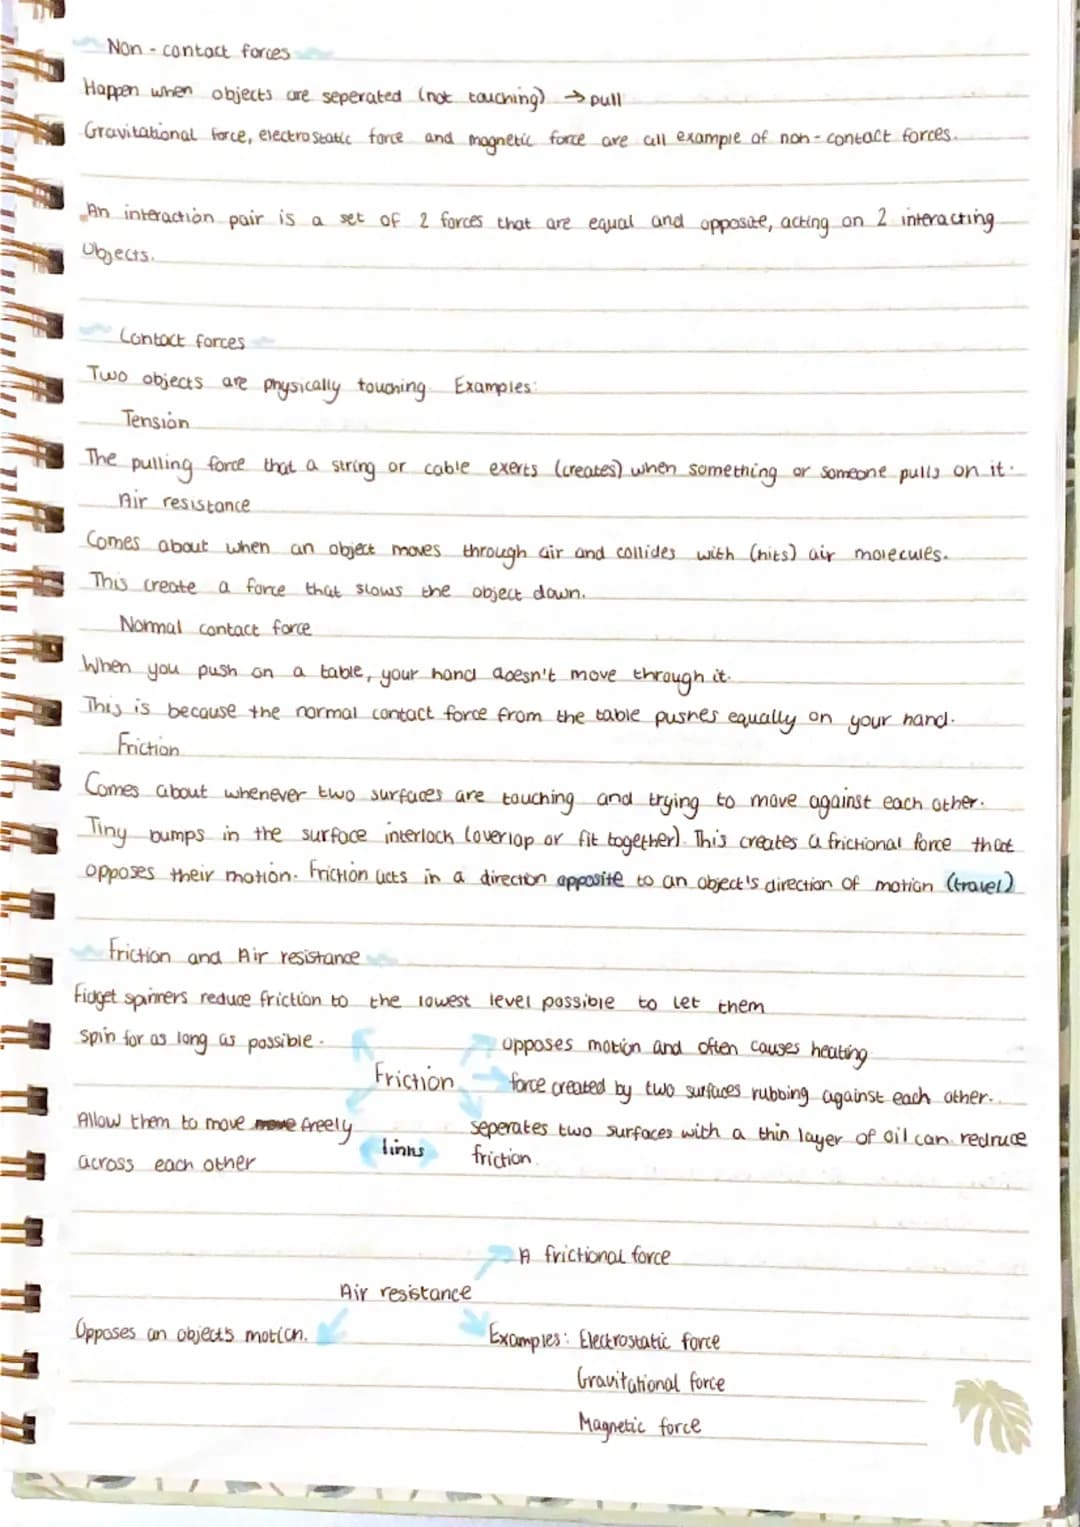 Non - contact forces
Happen when objects are seperated (not touching) → pull
Gravitational force, electrostatic force and magnetic force are all example of non - contact forces.
An interaction pair is a set of 2 forces that are equal and opposite, acting on 2 interacting
Objects.
Contact forces
Two objects are physically touching. Examples:
Tension
The pulling force that a string or cable exerts (creates) when something or someone pulls on it.
Air resistance
Comes about when an object moves through air and collides with (hits) air molecules.
This create a force that slows the object down.
Normal contact force
When you push on a table, your hand doesn't move through it.
This is because the normal contact force from the table pushes equally on your hand.
Friction
Comes about whenever two surfaces are touching and trying to move against each other.
Tiny bumps in the surface interlock (overlap or fit together). This creates a frictional force that
opposes their motion. Friction acts in a direction opposite to an object's direction of motion (travel)
Friction and Air resistance
Fidget spinners reduce friction to the lowest level possible to let them
spin for as long as possible.
opposes motion and often causes heating
Friction
force created by two surfaces rubbing against each other.
Allow them to move freely
seperates two surfaces with a thin layer of oil can redruce
links
friction.
across each other
A frictional force
Air resistance
Opposes an objects motion.
Examples: Electrostatic force
Gravitational force
Magnetic force